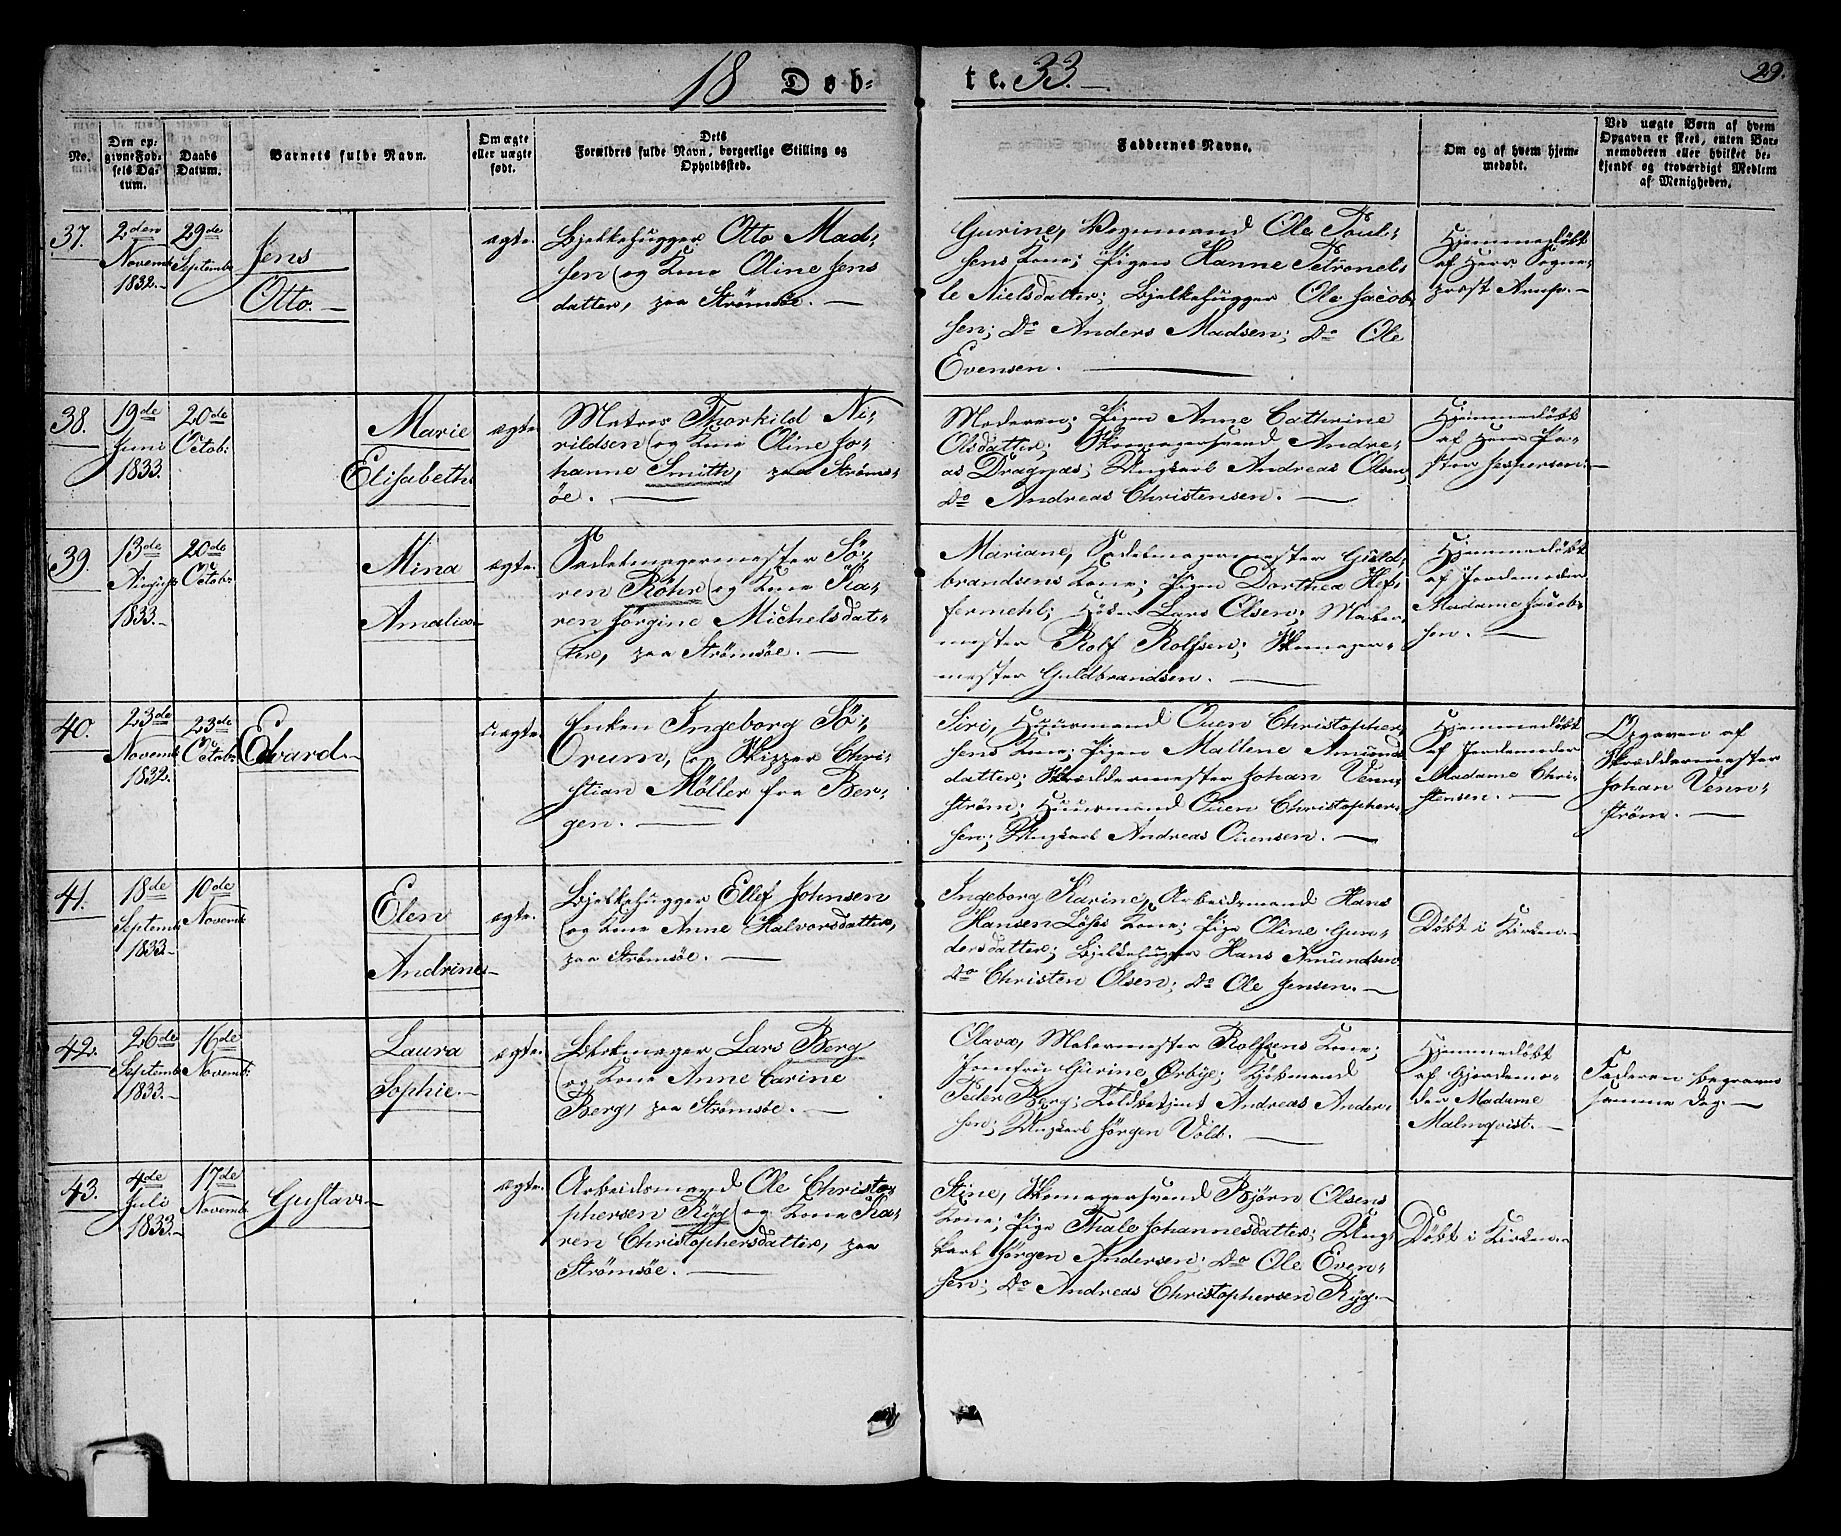 18 Døb-
te. 33.
29.
No.
Den op-
givne Fød-
sels Da-
tum.
Daabs
Datum.
Barnets fulde Navn.
Om ægte
eller uægte
født.
Dets
Forældres fulde Navn, borgerlige Stilling og
Opholdssted.
Faddernes Navne.
Om og af hvem hjem-
medøbt.
Ved uægte Børn af hvem
Opgaven er skeet, enten Bar-
nemoderen eller hvilket be-
kjendt og troværdigt Medlem
af Menigheden.
37.
2den
Novemb
1832.-
29de
Septemb:
Jens
Otto.-
ægte.
Bjelkehugger Otto Mad-
sen og Kone Oline Jens
datter, paa Strømsøe.
Gurine, Vognmand Ole Poul-
sens Kone; Pigen Hanne Petronel-
le Nielsdatter; Bjelkehugger Ole Jacob
sen; Do Anders Madsen; Do Ole
Evensen.
Hjemmedøbt
af Herr Sogne-
præst Arup.-
38.
19de
Juni
1833.
20de
Octob:
Marie
Elisabeth
ægte.
Matros Thorkild Ni-
rildsen og Kone Oline Jo-
hanne Smith, paa Strøms-
øe.
Moderen; Pigen Anne Cathrine
Olsdatter; Skomagersvend Andre-
as Dragnæs; Ungkarl Andreas Olsen,
Do Andreas Christensen.
Hjemmedøbt
af Herr Pa-
stor Jespersen.-
39.
13de
August
1833.-
20de
Octobr
Mina
Amalia-
ægte.
Sadelmagermester Sø-
ren Röhr og Kone Ka-
ren Jørgine Michelsdat-
ter, paa Strømsøe.
Mariane, Sadelmagermester Guld-
brandsens Kone; Pigen Dorthea Hef-
fermehl; Lars Olsen; Maler
mester Rolf Rolfsen; Skomager-
mester Guldbrandsen.
Hjemmedøbt
af Jordemoder
Madame Jacob-
sen.
40.
23de
Novemb
1832.
23de
Octobr
Edvard.-
uægte.
Enken Ingeborg Sø-
Orum, og Skipper Chri-
stian Möller fra Ber-
gen.
Siri, Huusmand Ouen Christopher
sens Kone; Pigen Mallene Amund
datter; Skræddermester Johan Venn
strøm; Huusmand Ouen Christopher
sen; Ungkarl Andreas Ouensen.
Hjemmedøbt
af Jordemoder
Madame Chri-
stensen.
Opgaven af
Skræddermester
Johan Venn-
strøm.
41.
18de
Septemb
1833.-
10de
Novemb:
Elen
Andrine-
ægte.
Bjelkehugger Ellef Johnsen
og Kone Anne Halvorsdatter,
paa Strømsøe.
Ingeborg Karine, Arbeidsmand Hans
Hansen Løses Kone; Pige Oline Gun-
dersdatter; Bjelkehugger Hans Amundsen
Do Christen Olsen; Do Ole Jensen.
Døbt i Kirken.-
42.
26de
Septemb
1833.-
16de
Novemb:
Laura
Sophie.-
ægte.
Blokmager Lars Berg
og Kone Anne Carine
Berg, paa Strømsøe.
Olava, Malermester Rolfsens Kone;
Jomfru Gurine Ørbye; Kjøbmand
Peder Berg; Toldbetjent Andreas Ander-
sen; Ungkarl Jørgen Vold.
Hjemmedøbt
af Gjordemo-
der Madame
Malmqvist.-
Faderen begraves
samme Dag.-
43.
4de
Juli
1833.-
17de
Novemb:
Gustav.-
ægte.
Arbeidsmand Ole Christo-
phersen Ryg og Kone Ka-
ren Christophersdatter, paa
Strømsøe.
Stine, Skomagersvend Bjørn Olsens
Kone; Pige Thale Johannesdatter; Ung-
karl Jørgen Andersen; Do Ole Even-
sen; Do Andreas Christophersen Ryg.-
Døbt i Kirken.-